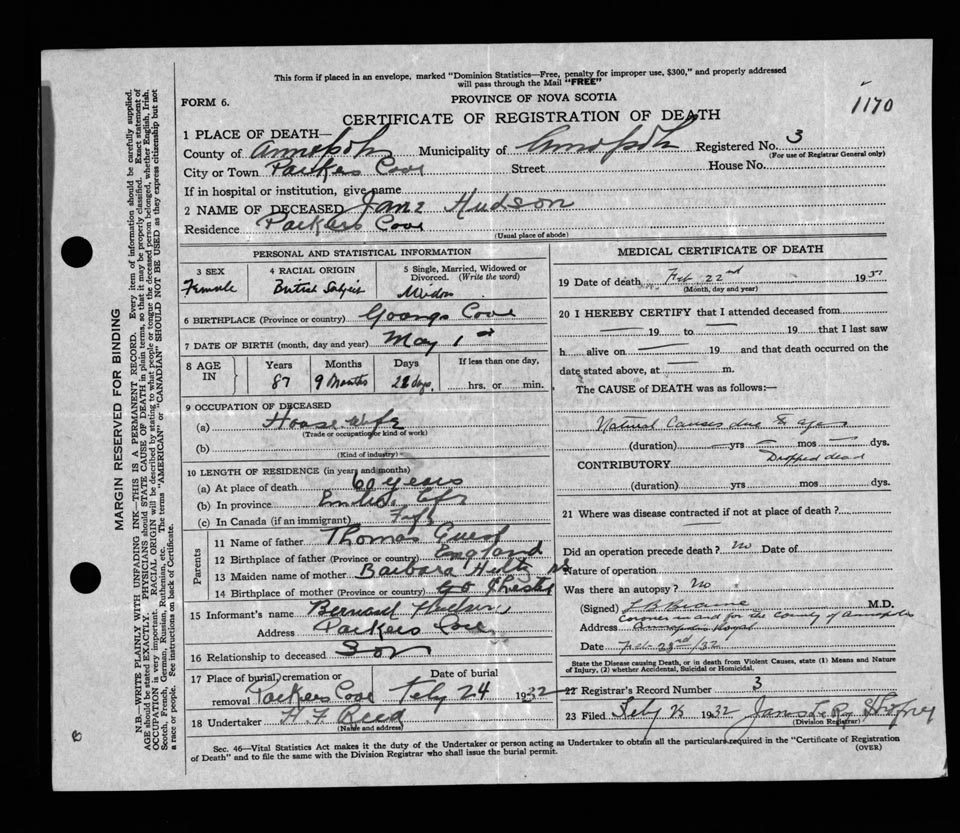 This form if placed in an envelope, marked "Dominion Statistics—Free, penalty for improper use, $300," and properly addressed
will pass through the Mail "FREE"
FORM 6.
PROVINCE OF NOVA SCOTIA
1170
CERTIFICATE OF REGISTRATION OF DEATH
1 PLACE OF DEATH—
County of Annapolis Municipality of Annapolis Registered No. 3
(For use of Registrar General only)
City or Town Parkers Cove Street House No.
If in hospital or institution, give name
2 NAME OF DECEASED Jane Hudson
Residence Parkers Cove
(Usual place of abode)
PERSONAL AND STATISTICAL INFORMATION
3 SEX
Female
4 RACIAL ORIGIN
British
5 Single, Married, Widowed or
Divorced. (Write the word)
6 BIRTHPLACE (Province or country) Cove
7 DATE OF BIRTH (month, day and year) May 1
8 AGE
IN
Years
87
Months
9 Months
Days
22 days
If less than one day,
hrs. or min.
9 OCCUPATION OF DECEASED
(a) House Wife
(Trade or occupation or kind of work)
(b)
(Kind of industry)
10 LENGTH OF RESIDENCE (in years and months)
(a) At place of death 60 years
(b) In province
(c) In Canada (if an immigrant)
Parents
11 Name of father Thomas Guest
12 Birthplace of father (Province or country) England
13 Maiden name of mother Barbara
14 Birthplace of mother (Province or country)
15 Informant's name Bernard Hudson
Address Parkers Cove
16 Relationship to deceased Son
17 Place of burial, cremation or
removal Parkers Cove
Date of burial
Feby 24 1932
18 Undertaker H F Reed
(Name and address)
MEDICAL CERTIFICATE OF DEATH
19 Date of death Feb 22nd 193
(Month, day and year)
20 I HEREBY CERTIFY that I attended deceased from
— 19 to — 19 that I last saw
h alive on — 19 and that death occurred on the
date stated above, at — m.
The CAUSE of DEATH was as follows:—
Natural Causes due to age
(duration) — yrs — mos — dys.
CONTRIBUTORY Dropped dead
(duration) yrs mos dys.
21 Where was disease contracted if not at place of death?
Did an operation precede death? No Date of
Nature of operation
Was there an autopsy? No
(Signed) L B Braine M.D.
Coroner in and for the County of Annapolis
Address Annapolis Royal
Date Feb 23rd/32
State the Disease causing Death, or in death from Violent Causes, state (1) Means and Nature
of Injury, (2) whether Accidental, Suicidal or Homicidal.
22 Registrar's Record Number 3
23 Filed Feby 1932
(Division Registrar)
Sec. 46—Vital Statistics Act makes it the duty of the Undertaker or person acting as Undertaker to obtain all the particulars required in the "Certificate of Registration
of Death" and to file the same with the Division Registrar who shall issue the burial permit.
(OVER)
MARGIN RESERVED FOR BINDING
N.B.—WRITE PLAINLY WITH UNFADING INK—THIS IS A PERMANENT RECORD. Every item of information should be carefully supplied.
AGE should be stated EXACTLY. PHYSICIANS should STATE CAUSE OF DEATH in plain terms, so that it may be properly classified. Exact statement of
OCCUPATION is very important. RACIAL ORIGIN will be described by stating to what people or tongue the deceased person belonged, whether English, Irish,
Scotch, French, German, Russian, Ruthenian, etc. The terms "AMERICAN" or "CANADIAN" SHOULD NOT BE USED as they express citizenship but not
a race or people. See instructions on back of Certificate.